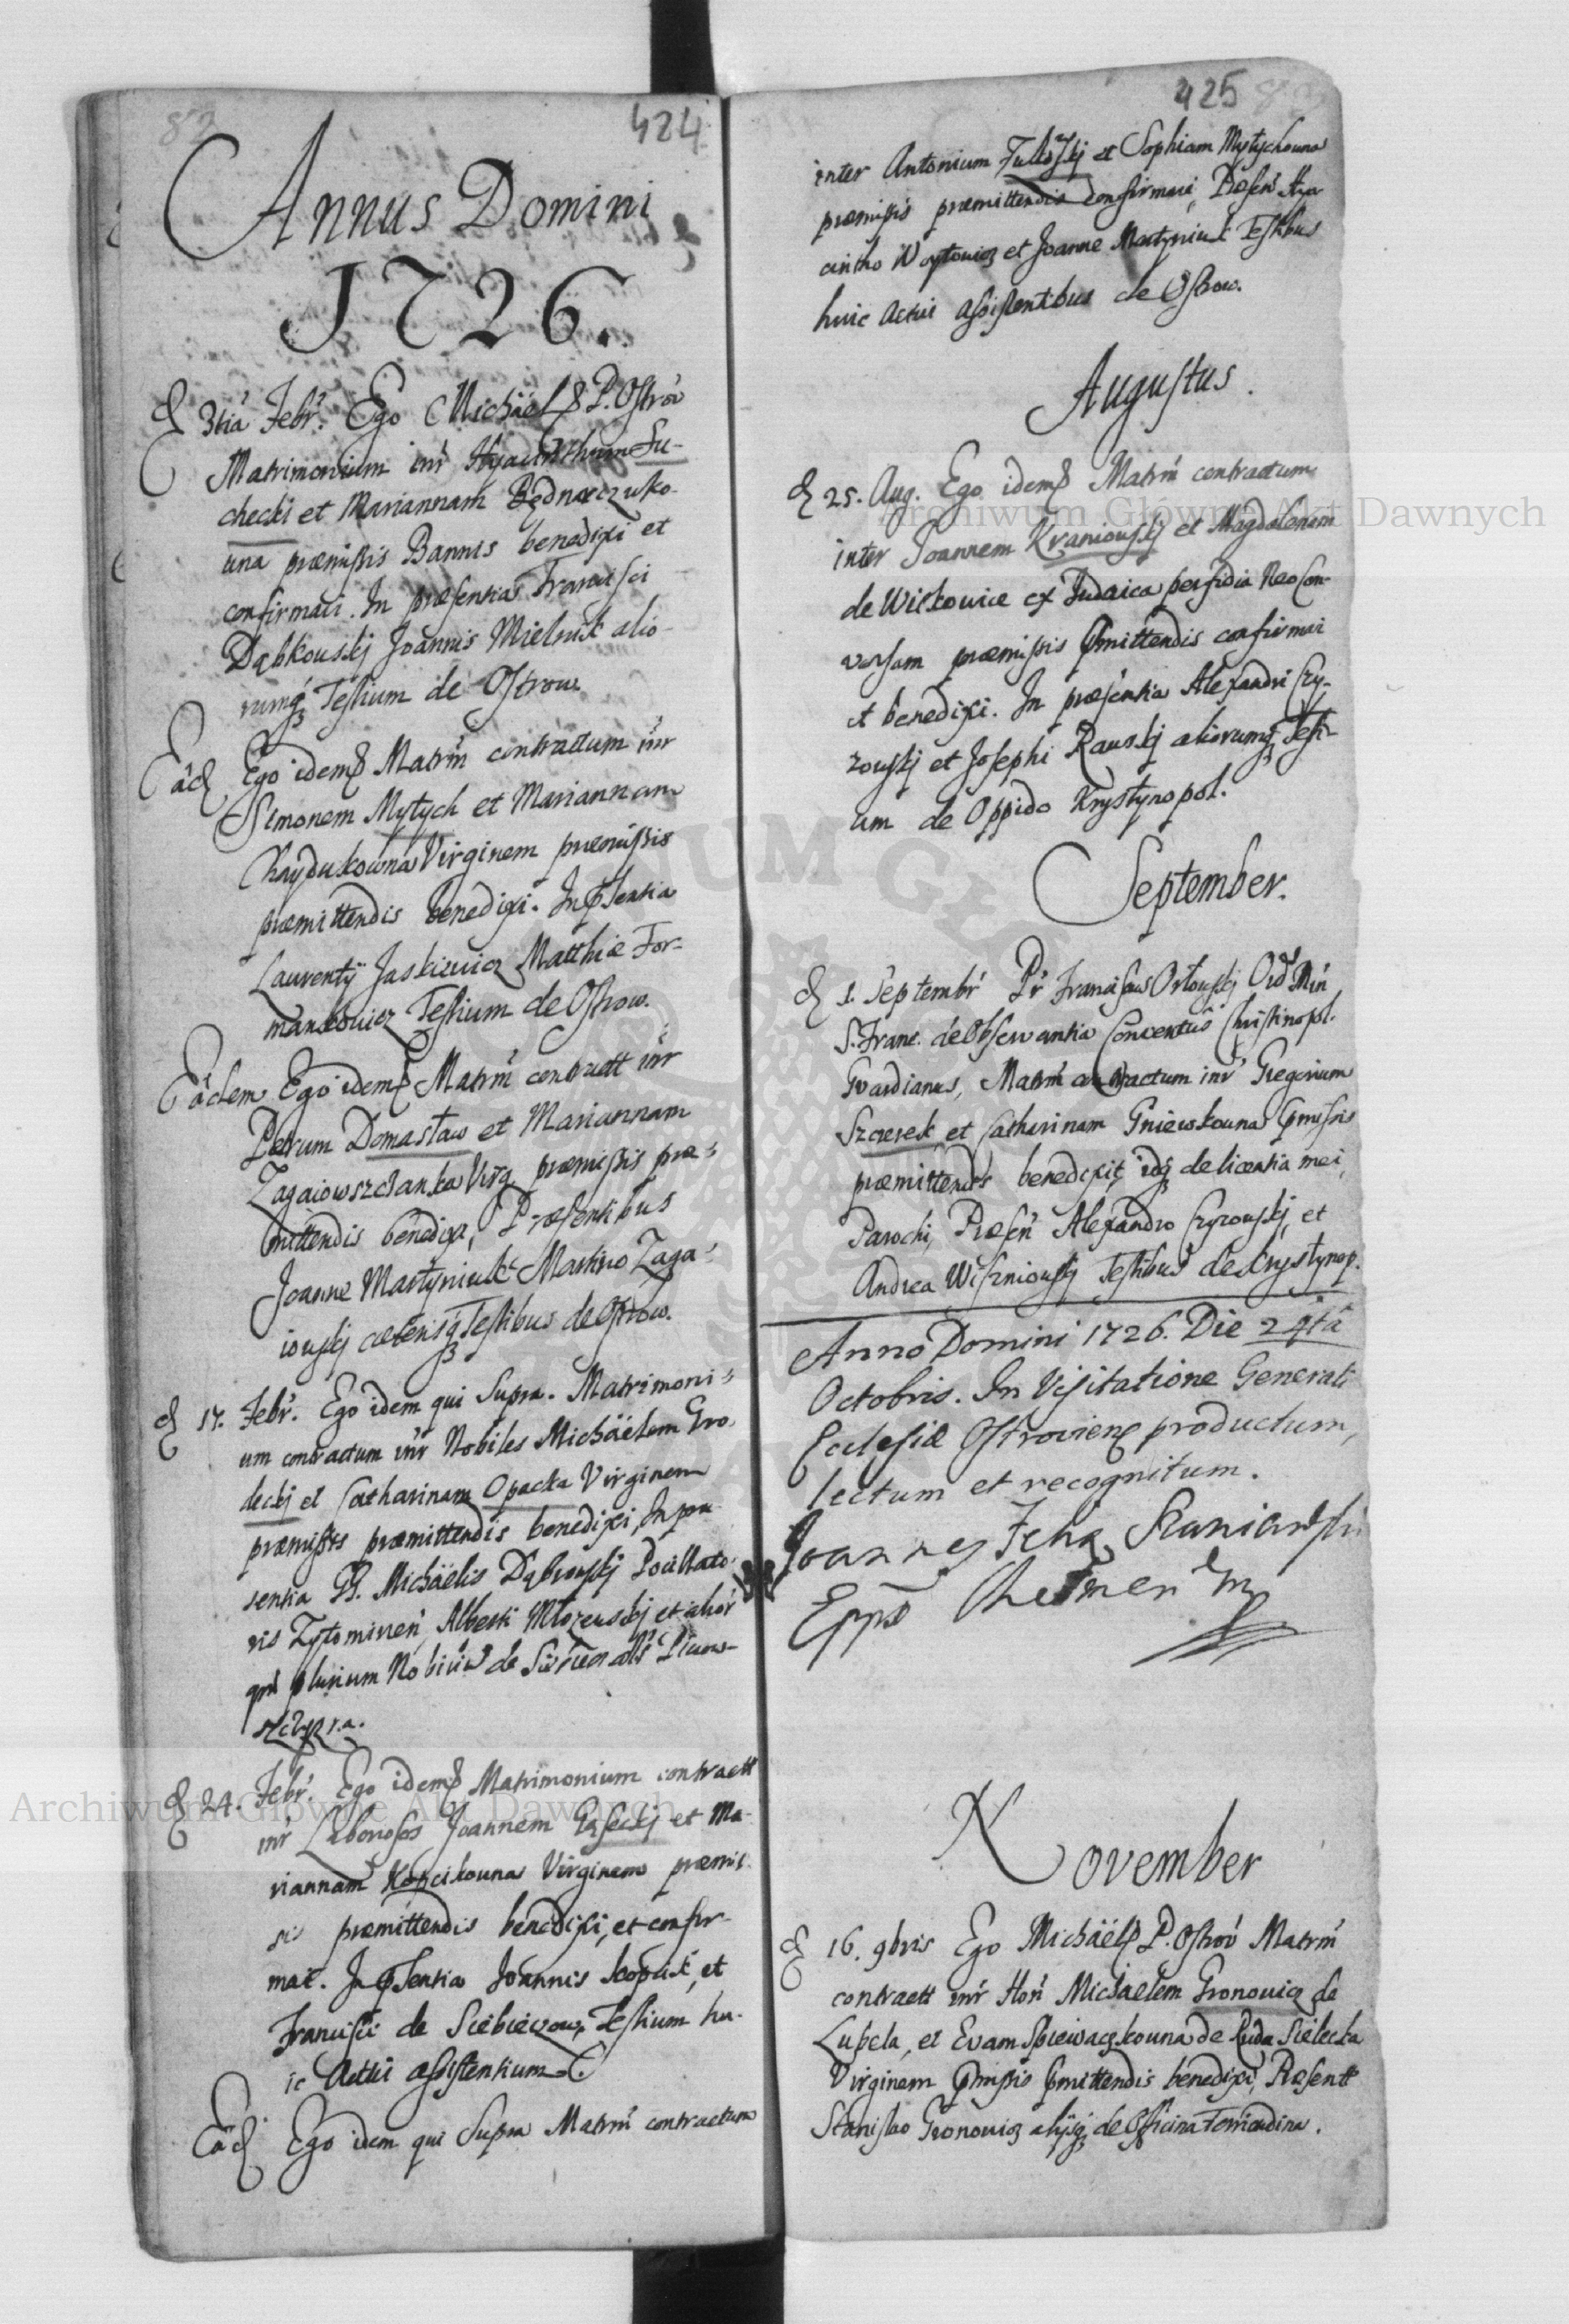 424
Annus Domini
1726.
d 3tia Febr. Ego Michäel P. Ostrov
Matrimonium inr Hyacinthum Su-
checki et Mariannam Bednarczuko-
una præmissis Bannis benedixi et
confirmavi. In præsentia Francisci
Dąbkouskj Joannis Mielnik alio-
rumq Testium de Ostrow.
Eâd Ego idem Matrm contractum inr
Simonem Mytych et Mariannam
Chaydukowna Virginem præmissis
præmittendis benedixi. In psentia
Laurentÿ Jaskiewicz Matthiæ For-
mankowicz Testium de Ostrow.
Eâdem Ego idem Matrm contractt inr
Petrum Domasław et Mariannam
Zagaiowszczanka Virg præmissis præ-
mittendis benedixi, Præsentibus
Joanne Martyniuk Martino Zaga-
iouskj cæterisq Testibus de Ostrow.
d 17. Febr. Ego idem qui Supra. Matrimoni-
um contractum inr Nobiles Michäelem Gro-
deckj et Catharinam Opacka Virginem
præmissis præmittendis benedixi, In præ-
sentia GG. Michäelis Dąbrouskj Pocillato-
ris Zytomirien, Alberti Młozeuskj et alior
qm plurium Nobiliũ de
d 24. Febr. Ego idem Matrimonium contractt
inr Laboriosos Joannem Gąseckj et Ma-
riannam Kopcikouna Virginem præmis-
sis præmittendis benedixi, et confir-
mavi. In psentia Joannis Kopcik, et
Francisci de Siebieczow, Testium hu-
ic Actui assistentium.
Eâd Ego idem qui Supra Matrm contractum
425
inter Antonium et Sophiam Mytychouna
præmissis præmittendis confirmavi, Præsen Hya-
cintho Woytowicz et Joanne Martyniuk Testibus
huic Actui assistentibus de Ostrow.
Augustus.
d 25. Aug. Ego idem Matrm contractum
inter Joannem Kraniouskj et Magdalenam
de Witkowice ex Judaica perfidia Neo Con-
versam præmissis pmittendis confirmavi
et benedixi. In præsentia Alexandri Czy-
zouskj et Josephi Rauskj aliorumq Testi-
um de Oppido Krystynopol.
September.
d 1. Septembr Pr Franciscus Orłouskj Ord Min
S. Franc. de Observantia Conventûs Christinopol.
Gvardianus, Matrm contractum inr Gregorium
Szczerek et Catharinam Gniewkouna pmissis
præmittendis benedixit, idq de licentia mei,
Parochi, Præsen Alexandro Czyzouskj, et
Andrea Wiszniouskj Testibus de Krystynop.
Anno Domini 1726. Die 24tâ
Octobris. In Visitatione Generali
Ecclesiæ Ostroviens productum,
lectum et recognitum.
Joannes Felix Szaniawski
Epps Chelmen mp
November
d 16. 9bris Ego Michäel P. Ostrov Matrm
contractt inr Hon Michaelem Gronowicz de
Lupcla, et Evam Spiewaczkouna de Ruda Sielecka
Virginem pmissis pmittendis benedixi, Præsentt
Stanislao Gronowicz alÿsq de Officina Ferricudina.
Archiwum Główne Akt Dawnych
Archiwum Główne Akt Dawnych